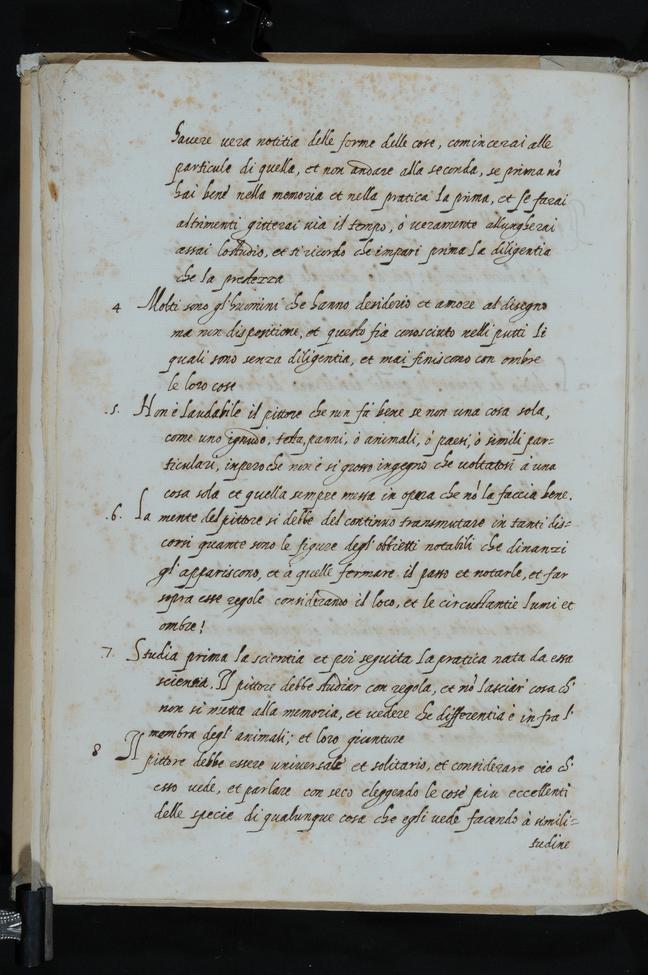 havere vera notitia delle forme delle cose, comincerai alle
particule di quella, et non andare alla seconda, se prima nō
hai bene nella memoria et nella pratica la prima, et se farai
altrimenti gitterai via il tempo, ò veramente allungherai
assai lo studio, et ti ricordo che impari prima la diligentia
che la prestezza
4 Molti sono gl'huomini che hanno desiderio et amore al disegno
ma non dispositione, et questo fia conosciuto nelli putti li
quali sono senza diligentia, et mai finiscono con ombre
le loro cose
.5. Non è laudabile il pittore che non fà bene se non una cosa sola,
come uno ignudo, testa, panni, ò animali, ò paesi, ò simili par=
ticulari, inperoche non è si grosso ingegno che voltatosi à una
cosa sola et quella sempre messa in opera che nō la faccia bene.
.6. La mente del pittore si debbe del continuo transmutare in tanti dis=
corsi quante sono le figure degl'obbietti notabili che dinanzi
gl'appariscono, et à quelle fermare il passo et notarle, et far
sopra esse regole considerando il loco, et le circustantie lumi et
ombre!
7. Studia prima la scientia et poi seguita la pratica nata da essa
scientia. Il pittore debbe studiar con regola, et nō lasciar cosa ch'
non si metta alla memoria, et vedere che differentia è infra l'
membra degl'animali; et loro giunture
8 Il
pittore debbe essere universale et solitario, et considerare ciò ch'
esso vede, et parlare con seco eleggendo le cose piu eccellenti
delle specie di qualunque cosa che egli vede facendo à simili=
tudine